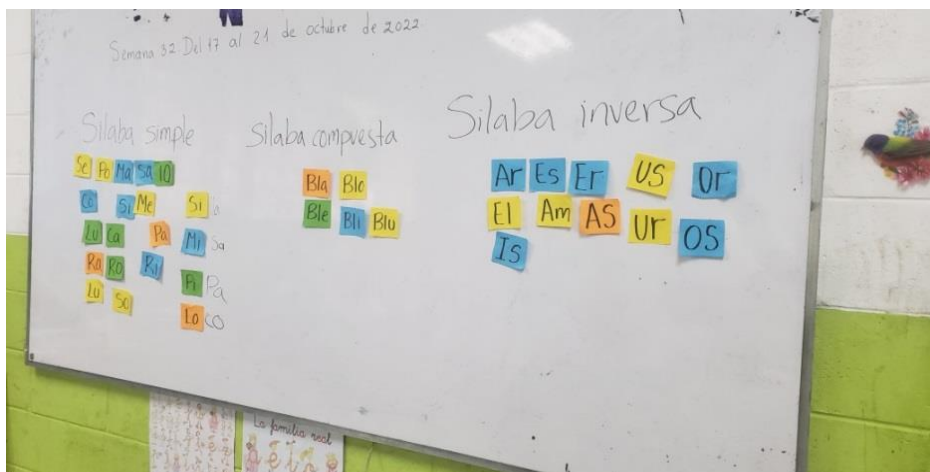 Semana 32 Del 17 al 21 de octubre de 2022
Silaba simple
Se Po Ma Sa IO
Co Si Me Si
Lu Ca Pa Mi Sa
Ra Ro Ri Pi Pa
Lu So Lo co
Silaba compuesta
Bla Blo
Ble Bli Blu
Silaba inversa
Ar Es Er US Or
El Am AS Ur OS
IS
La familia real